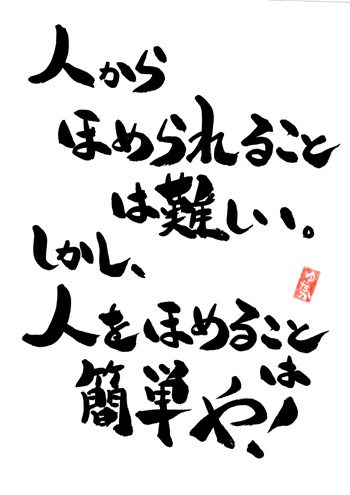 人から
ほめられること
は難しい。
しかし、
人をほめること
は
簡単や!
ゆたか